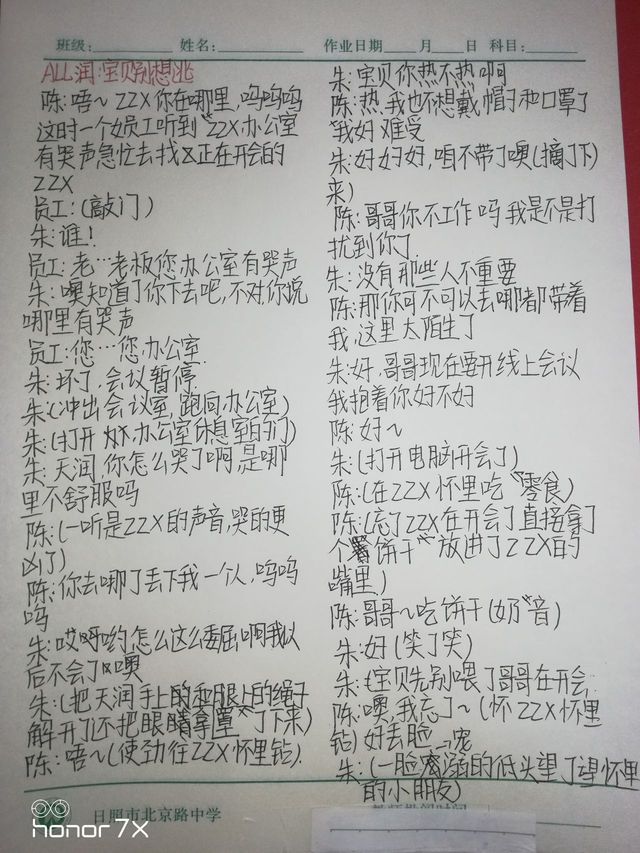 班级: 姓名: 作业日期 月 日 科目:
ALL润:宝贝别想逃
陈:唔~ZZX你在哪里,呜呜呜
这时一个员工听到ZZX办公室
有哭声急忙去找正在开会的
ZZX
员工:(敲门)
朱:谁!
员工:老…老板您办公室有哭声
朱:噢知道了你下去吧,不对,你说
哪里有哭声
员工:您…您办公室.
朱:坏了,会议暂停.
朱:(冲出会议室,跑向办公室)
朱:(打开办公室休息室的门)
朱:天润,你怎么哭了啊,是哪
里不舒服吗
陈:(一听是ZZX的声音,哭的更
凶了)
陈:你去哪了丢下我一个人,呜呜
呜
朱:哎呀哟,怎么这么委屈啊我以
后不会了噢
朱:(把天润手上的和腿上的绳子
解开了还把眼罩拿了下来)
陈:唔~(使劲往ZZX怀里钻).
朱:宝贝你热不热啊
陈:热,我也不想戴帽子和口罩了
我好难受
朱:好好好,咱不带了噢(摘了下
来)
陈:哥哥你不工作吗我是不是打
扰到你了.
朱:没有那些人不重要
陈:那你可不可以去哪都带着
我,这里太陌生了
朱:好,哥哥现在要开线上会议
我抱着你好不好
陈:好~
朱:(打开电脑开会了)
陈:(在ZZX怀里吃"零食)
陈:(忘了ZZX在开会了直接拿了
个饼干放进了ZZX的
嘴里)
陈:哥哥~吃饼干(奶音)
朱:好(笑了笑)
朱:宝贝先别喂了哥哥在开会
陈:噢,我忘了~(怀ZZX怀里
钻)好丢脸
朱:(一脸宠溺的低头望了望怀里
的小朋友)
日照市北京路中学
honor 7X